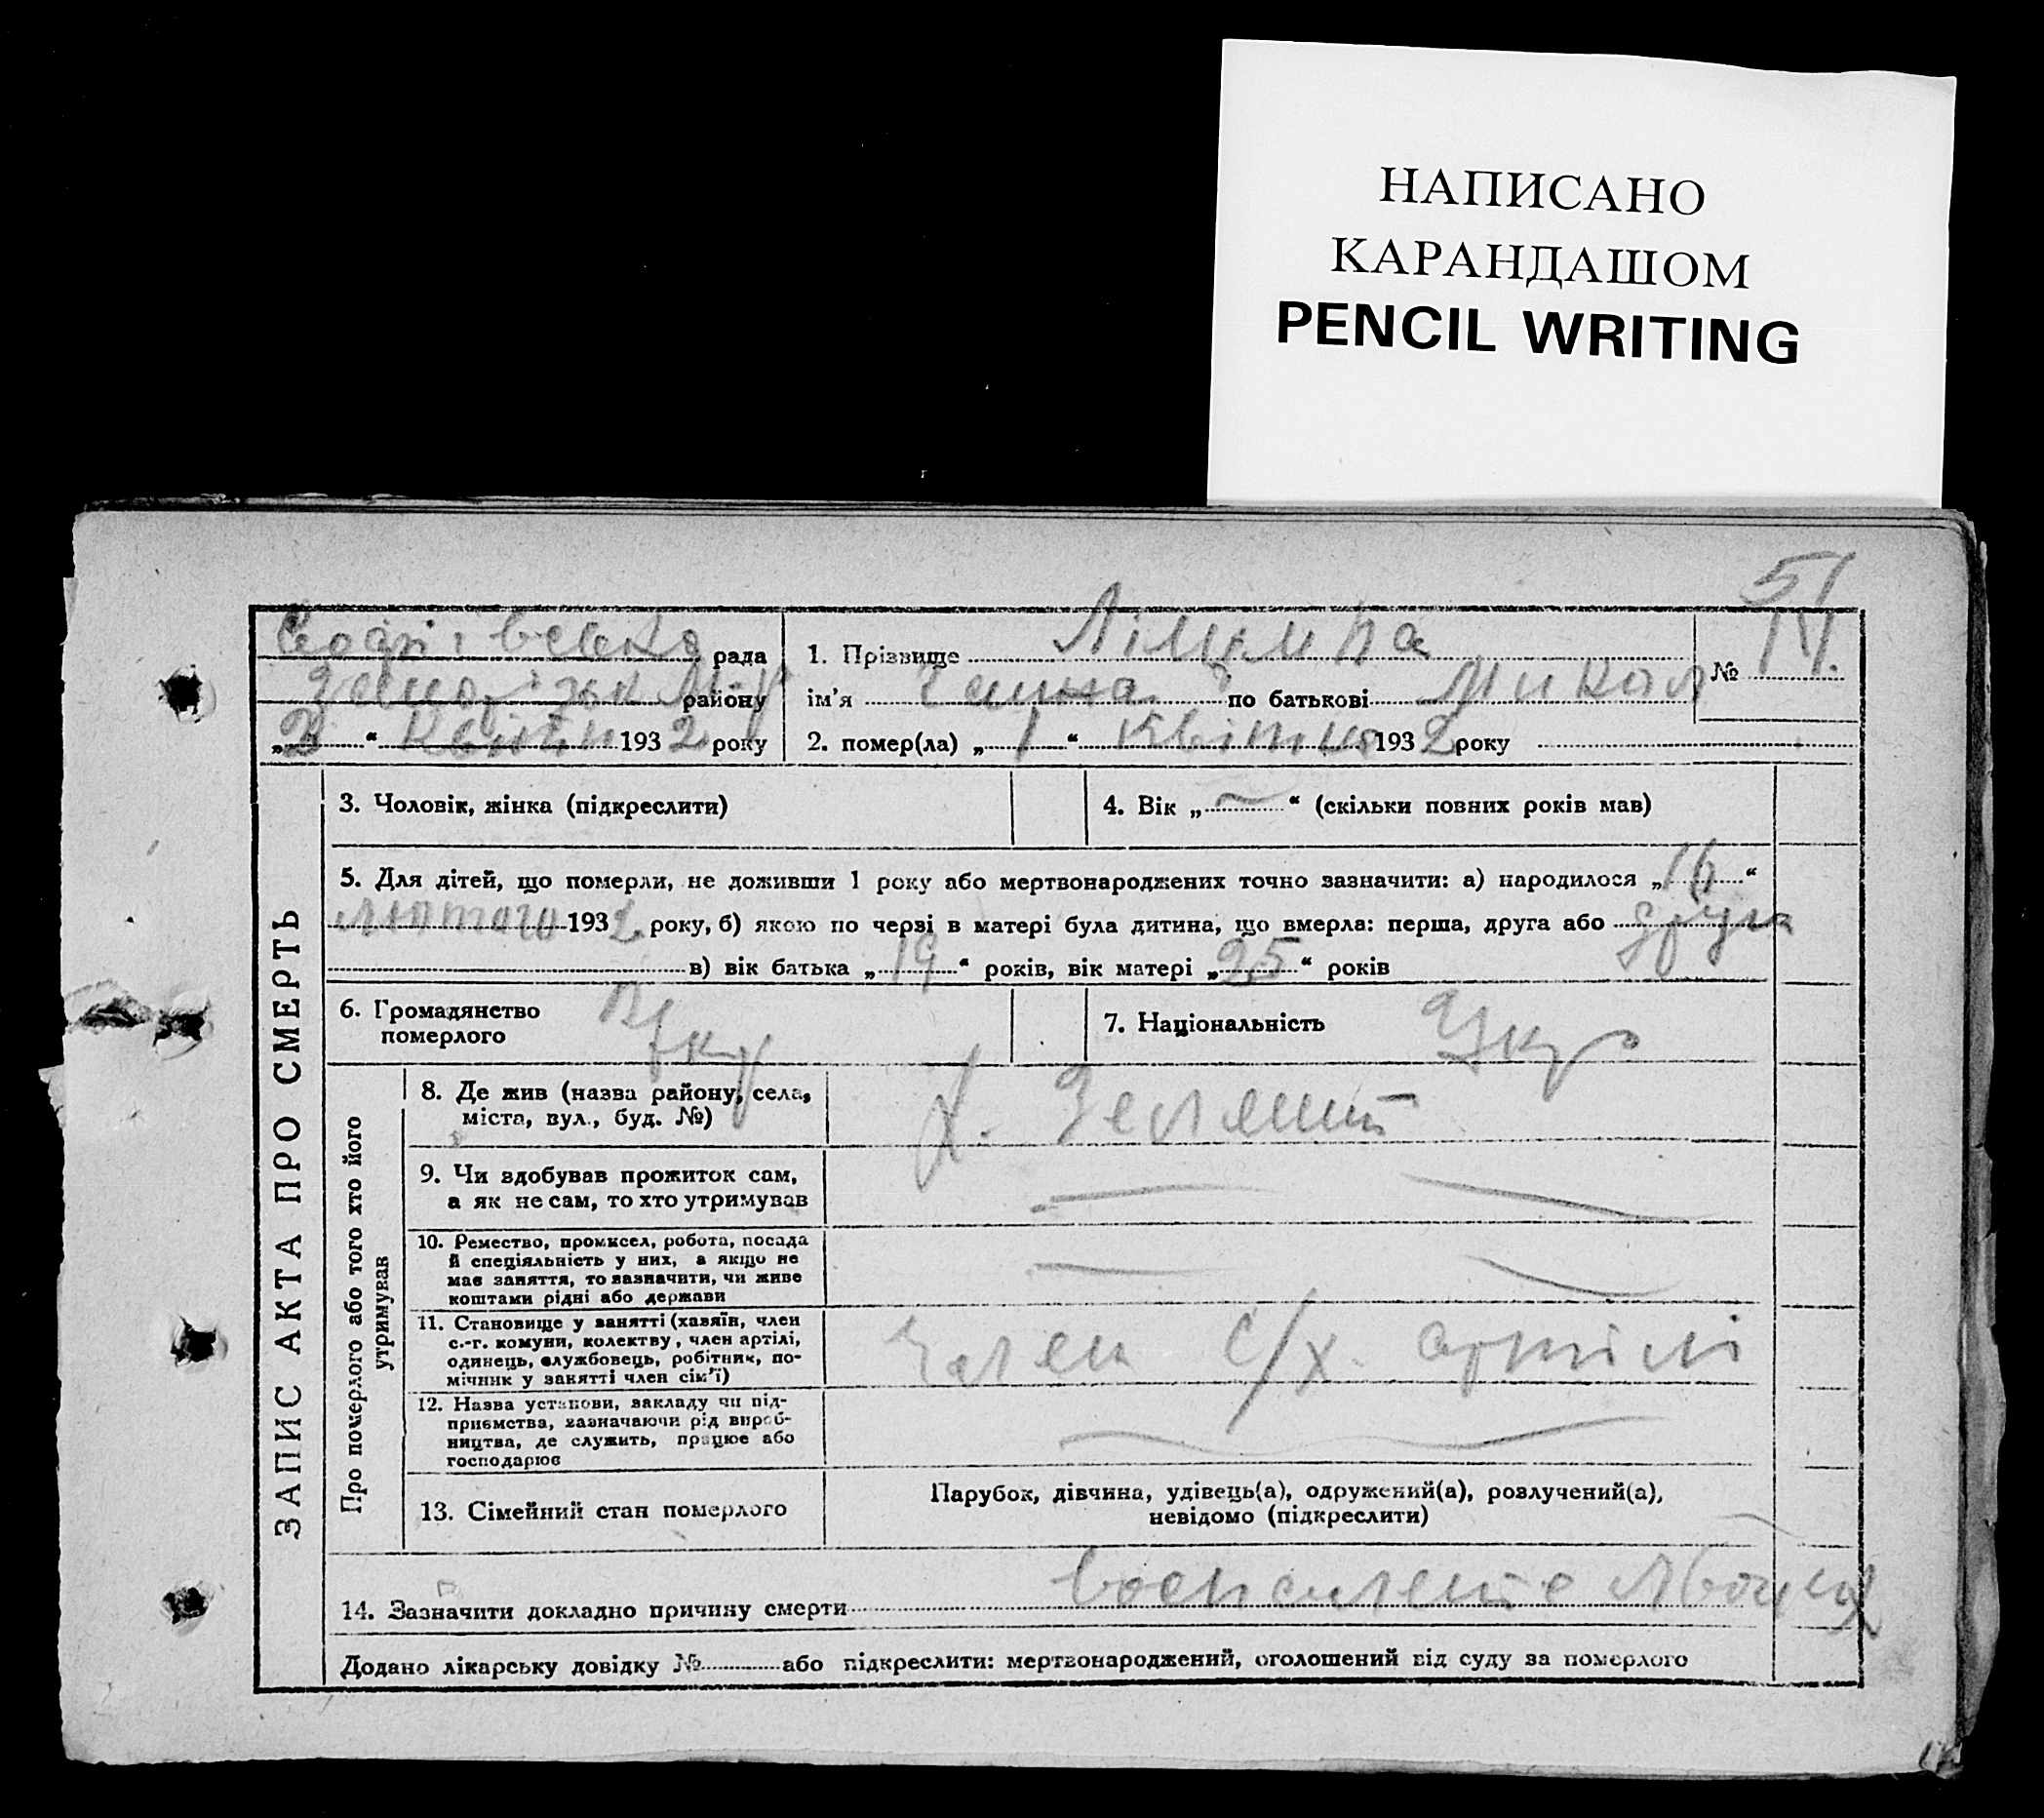 НАПИСАНО
КАРАНДАШОМ
PENCIL WRITING
51
рада
району
193 2 року
1. Прізвище
№
ім'я по батькові Микол
2. помер(ла) „ 1 “ Квітня 193 2 року
ЗАПИС АКТА ПРО СМЕРТЬ
3. Чоловік, жінка (підкреслити)
4. Вік „ “ (скільки повних років мав)
5. Для дітей, що померли, не доживши 1 року або мертвонароджених точно зазначити: а) народилося „ 16 “
Лютого 193 2 року, б) якою по черзі в матері була дитина, що вмерла: перша, друга або друга
в) вік батька „ 19 “ років, вік матері „ 25 “ років
6. Громадянство
померлого
7. Національність Укр
Про померлого або того хто його
утримував
8. Де жив (назва району, села,
міста, вул., буд. №)
х.
9. Чи здобував прожиток сам,
а як не сам, то хто утримував
10. Ремество, промисел, робота, посада
й спеціяльність у них, а якщо не
має заняття, то зазначити, чи живе
коштами рідні або держави
11. Становище у занятті (хазяїн, член
с.-г. комуни, колектву, член артілі,
одинець, службовець, робітник, по-
мічник у занятті член сім'ї)
Член с/х. артілі
12. Назва установи, закладу чи під-
приємства, зазначаючи рід вироб-
ництва, де служить, працює або
господарює
13. Сімейний стан померлого
Парубок, дівчина, удівець(а), одружений(а), розлучений(а),
невідомо (підкреслити)
14. Зазначити докладно причину смерти
Додано лікарську довідку № або підкреслити: мертвонароджений, оголошений від суду за померлого